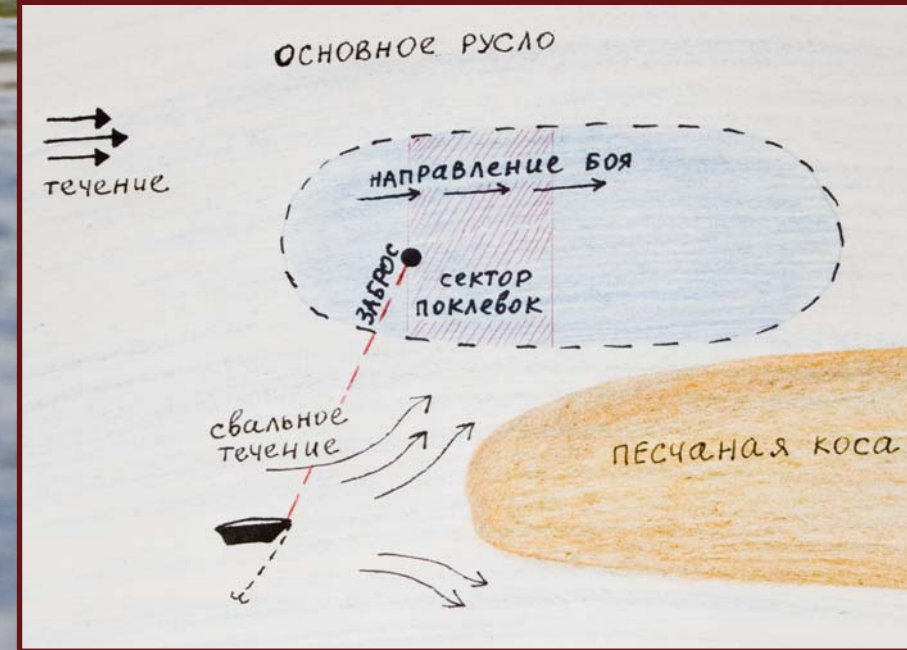 ОСНОВНОЕ РУСЛО
течение
НАПРАВЛЕНИЕ БОЯ
ЗАБРОС
сектор
поклевок
свальное
течение
ПЕСЧАНАЯ КОСА